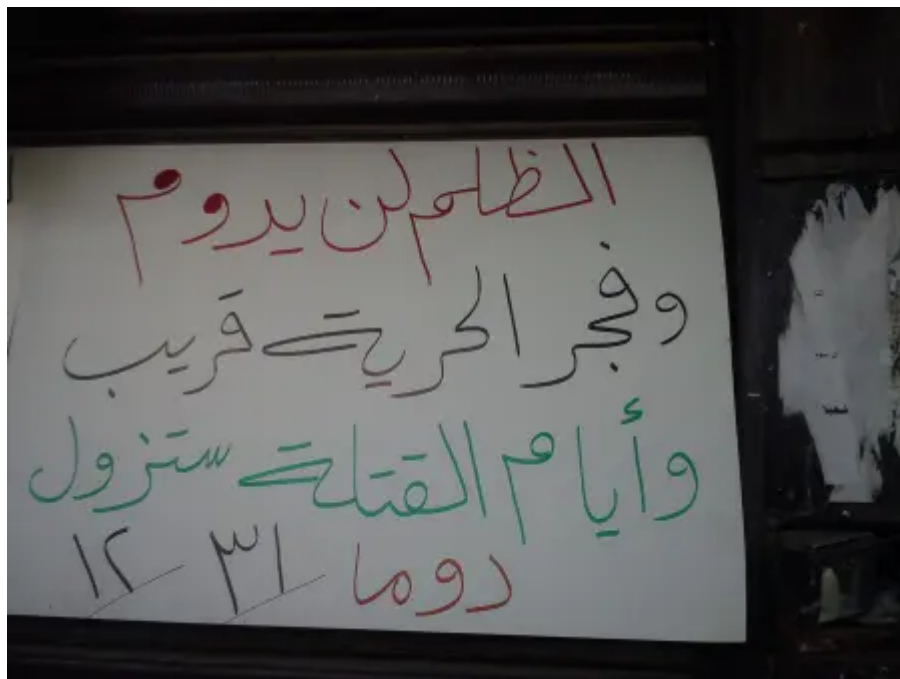 الظلم لن يدوم
وفجر الحرية قريب
وأيام القتلة ستزول
دوما ٣١ / ١٢ /